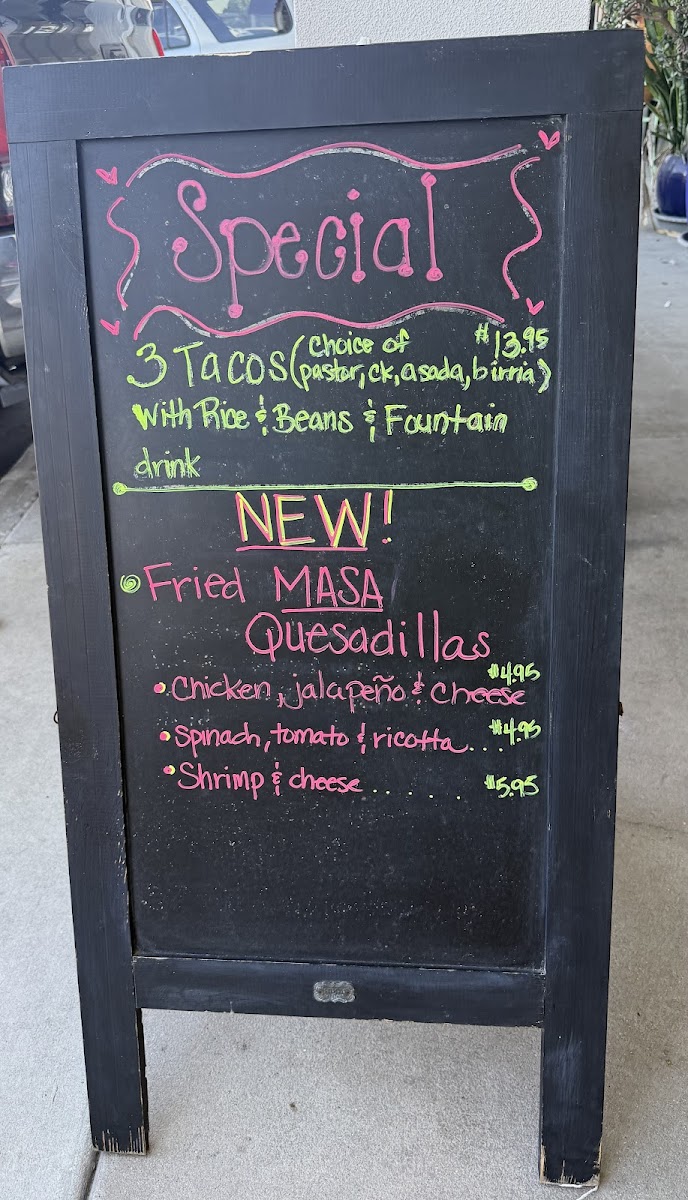 Special
3 Tacos (Choice of pastor, ck, asada, birria) $13.95
With Rice & Beans & Fountain
drink
NEW!
Fried MASA
Quesadillas
Chicken, jalapeño & cheese $4.95
Spinach, tomato & ricotta... $4.95
Shrimp & cheese...... $5.95